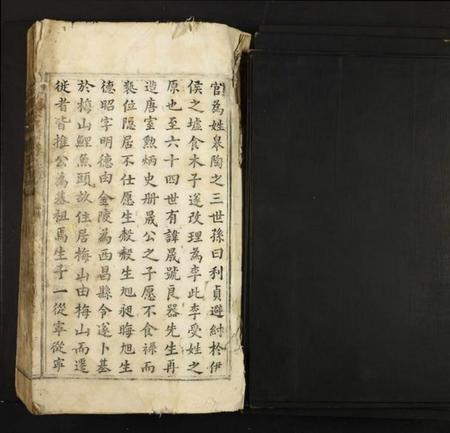 官為姓皋陶之三世孫曰利貞避紂於伊
侯之墟食木子遂改理為李此李受姓之
原也至六十四世有諱晟號良器先生再
造唐室勲炳史册晟公之子愿不食祿而
褻位隠居不仕愿生㲄㲄生旭昶晦旭生
德昭字明德由金陵為西昌縣令遂卜基
於梅山鯉魚頭故住居梅山由梅山而遷
從者皆推公為基祖焉生子一從寧從寧